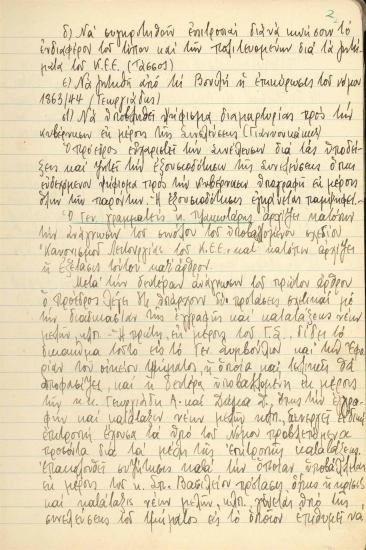 2.
δ) Νὰ συγκροτηθοῦν ἐπιτροπαὶ διὰ νὰ κινήσουν τὸ
ἐνδιαφέρον τοῦ τύπου καὶ τῶν πολιτευομένων διὰ τὰ ζητή-
ματα τοῦ Κ.Ε.Ε. (Τάσσος)
ε) Νὰ ζητηθῇ ἀπὸ τὴ Βουλὴ ἡ ἐπικύρωσις τοῦ νόμου
1863/44 (Γεωργιάδης)
Νὰ ὑποβληθῇ ψήφισμα διαμαρτυρίας πρὸς τὴν
κυβέρνησιν ἐκ μέρους τῆς Συνελεύσεως (Γιαννουκάκης)
Ὁ πρόεδρος εὐχαριστεῖ τὴν Συνέλευσιν διὰ τὰς ὑποδεί-
ξεις καὶ ζητεῖ τὴν ἐξουσιοδότησιν τῆς Συνελεύσεως ὅπως
ἐνδεχόμενον ψήφισμα πρὸς τὴν κυβέρνησιν ὑπογραφῇ ἐκ μέρους
ὅλων τῶν παρόντων. Ἡ ἐξουσιοδότησις ἐγκρίνεται παμψηφεί.
Ὁ Γεν. γραμματεὺς κ. ἀρχίζει κατόπιν
τὴν ἀνάγνωσιν τοῦ συνόλου τοῦ ὑποβαλλομένου σχεδίου
"Κανονισμοῦ Λειτουργίας τοῦ Κ.Ε.Ε." καὶ κατόπιν ἀρχίζει
ἡ ἐξέτασις τούτου κατ' ἄρθρον.
Μετὰ τὴν δευτέραν ἀνάγνωσιν τοῦ πρώτου ἄρθρου
ὁ Πρόεδρος λέγει ὅτι ὑπάρχουν δύο προτάσεις σχετικαὶ μὲ
τὴν διαδικασίαν τῆς ἐγγραφῆς καὶ κατατάξεως νέων
μελῶν κλπ. - Ἡ πρώτη, ἐκ μέρους τοῦ Γ.Σ., δίδει τὸ
δικαίωμα τοῦτο εἰς τὸ Γεν. Συμβούλιον καὶ τὴν Ἐφο-
ρίαν τοῦ οἰκείου τμήματος, ἡ ὁποία καὶ τελικῶς θὰ
ἀποφασίζει, καὶ ἡ δευτέρα ὑποβαλλομένη ἐκ μέρους
τῶν κ.κ. Γεωργιάδη Α. καὶ ὅπως τὴν ἐγγρα-
φὴν καὶ κατάταξιν νέων μελῶν κλπ. ἐνεργεῖ εἰδικὴ
ἐπιτροπὴ ἔχουσα τὰ ὑπὸ τοῦ Νόμου προβλεπόμενα
προσόντα διὰ τὰ μέλη τῆς ἐπιτροπῆς κατατάξεως.
Ἐπακολουθεῖ συζήτησις κατὰ τὴν ὁποίαν ὑποβάλλεται
ἐκ μέρους τοῦ κ. Σπ. Βασιλείου πρότασις ὅπως ἡ κρίσις
καὶ κατάταξις νέων μελῶν, κλπ. γίνεται ὑπὸ τῆς
συνελεύσεως τοῦ τμήματος εἰς τὸ ὁποῖον ἐπιθυμεῖ νὰ